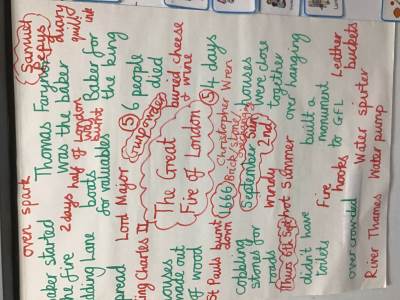 oven spark
Samuel Pepys
diary
quill
ink
baker started
the fire
Thomas Farynor
was the baker
Baker for
the king
2 days half of London
was burnt
dding Lane
boats
for valuables
6 people
died
buried cheese
+ wine
pread
Lord Major
5
Trump
The Great
Fire of London
5
4 days
ing Charles II
1666
Christopher Wren
Brick/stone
houses
were close
together
ouses
made out
of wood
St Pauls burnt
down
September
2nd
windy
hot summer
over hanging
cobbling
stones for
roads
Thurs 6th Sep
didn't have
toilets
built a
monument
to GFL
Fire
hooks
Leather
buckets
over crowded
Water sputer
River Thames
Water pump